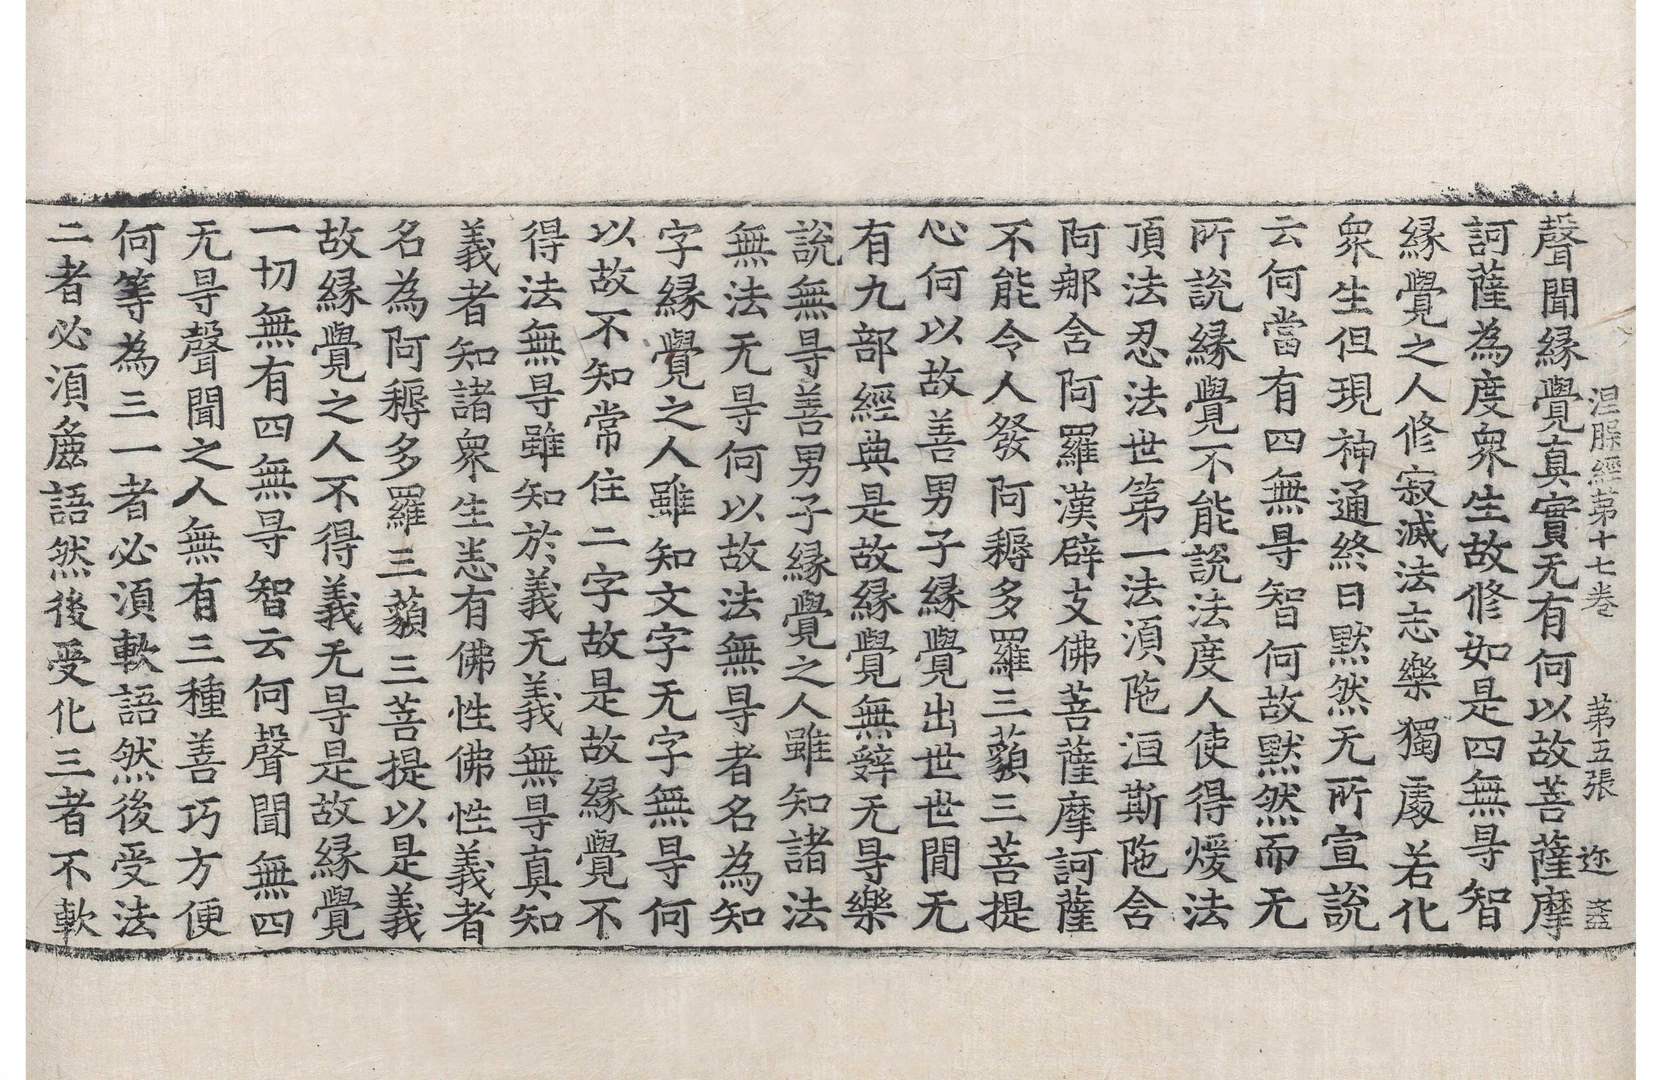 涅槃經第十七卷 第五張 迩
聲聞緣覺真實无有何以故菩薩摩
訶薩為度衆生故修如是四無㝵智
緣覺之人修寂滅法志樂獨處若化
衆生但現神通終日默然无所宣說
云何當有四無㝵智何故默然而无
所說緣覺不能說法度人使得煖法
頂法忍法世第一法湏陁洹斯陁含
阿那含阿羅漢辟支佛菩薩摩訶薩
不能令人發阿耨多羅三藐三菩提
心何以故善男子緣覺出世世間无
有九部經典是故緣覺無辭无㝵樂
說無㝵善男子緣覺之人雖知諸法
無法无㝵何以故法無㝵者名為知
字緣覺之人雖知文字无字無㝵何
以故不知常住二字故是故緣覺不
得法無㝵雖知於義无義無㝵真知
義者知諸衆生悉有佛性佛性義者
名為阿耨多羅三藐三菩提以是義
故緣覺之人不得義无㝵是故緣覺
一切無有四無㝵智云何聲聞無四
无㝵聲聞之人無有三種善巧方便
何等為三一者必湏軟語然後受法
二者必湏麁語然後受化三者不軟